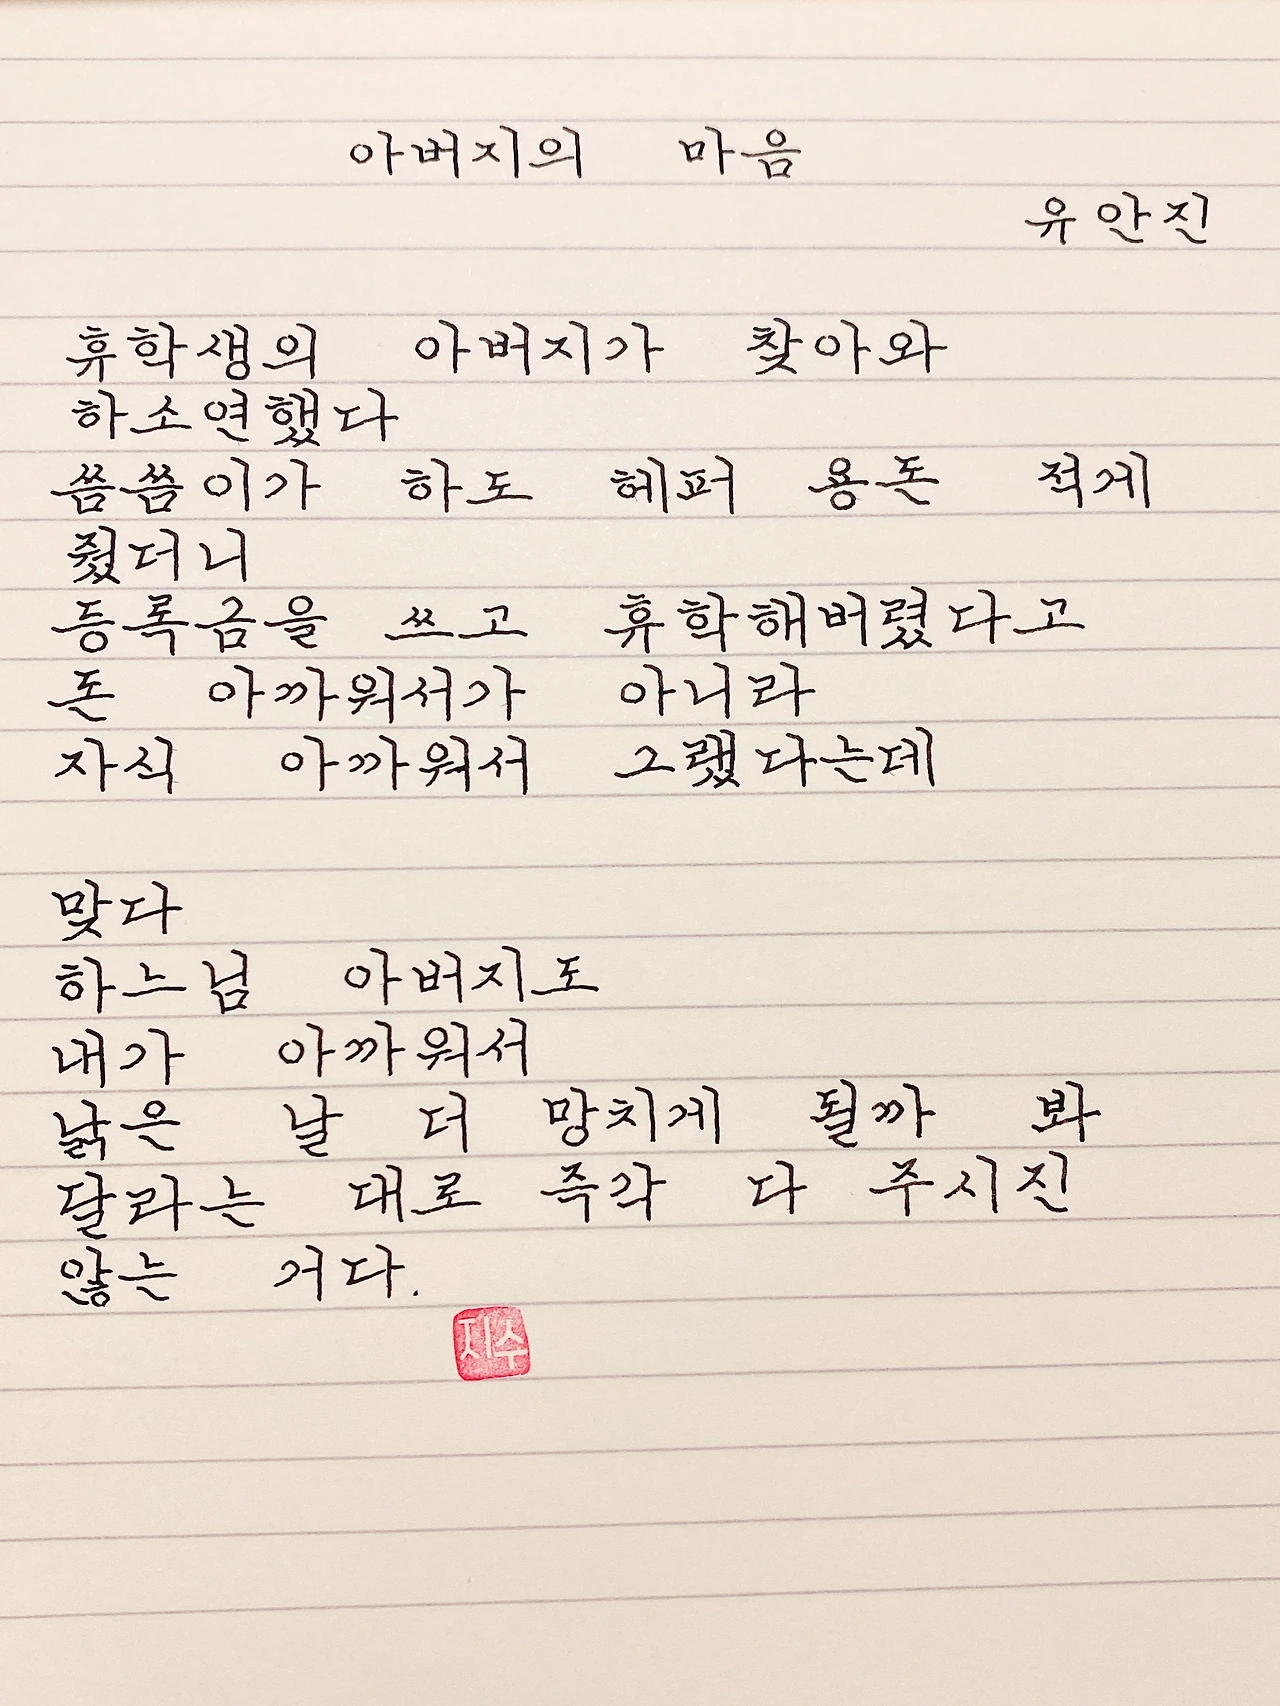 아버지의 마음
유안진
휴학생의 아버지가 찾아와
하소연했다
씀씀이가 하도 헤퍼 용돈 적게
줬더니
등록금을 쓰고 휴학해버렸다고
돈 아까워서가 아니라
자식 아까워서 그랬다는데
맞다
하느님 아버지도
내가 아까워서
낡은 날 더 망치게 될까 봐
달라는 대로 즉각 다 주시진
않는 거다.
지수